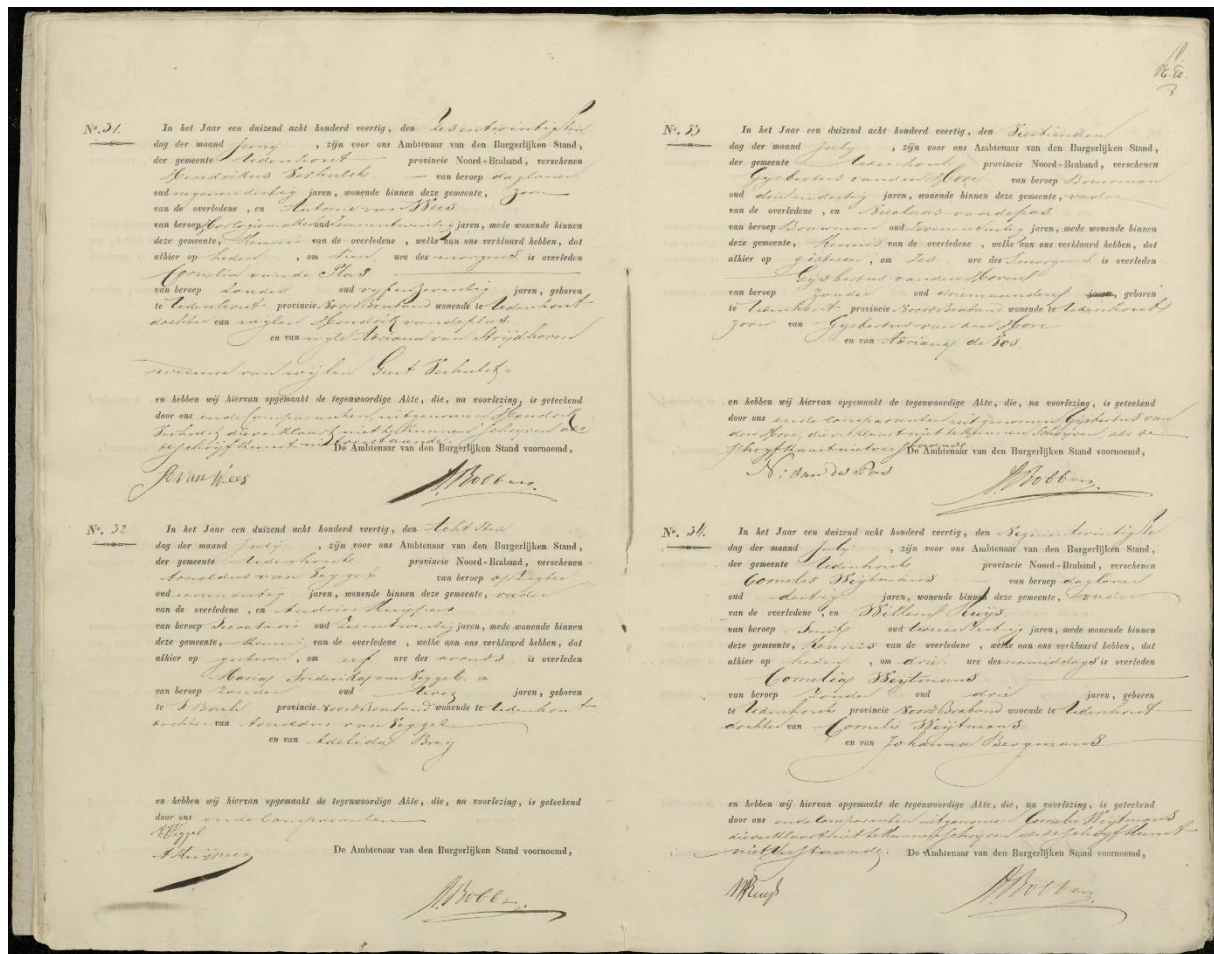 N°. 31. In het Jaar een duizend acht honderd veertig, den Zesentwintigsten
dag der maand Juny, zijn voor ons Ambtenaar van den Burgerlijken Stand,
der gemeente Udenhout provincie Noord-Braband, verschenen
Hendrikus Verhulst van beroep daglooner
oud negenendertig jaren, wonende binnen deze gemeente, zoon
van de overledene, en Antonie van Wees
van beroep Horologiemaker oud jaren, mede wonende binnen
deze gemeente, Kennis van de overledene, welke aan ons verklaard hebben, dat
alhier op heden, om tien ure des morgens is overleden
Cornelia van de Plas
van beroep Zonder oud vyfenzeventig jaren, geboren
te Udenhout provincie Noord Braband wonende te Udenhout
dochter van wylen Hendrik van de Plas
en van wyle Adriana van Strijdhoven
weduwe van wijlen Gert Verhulst
en hebben wij hiervan opgemaakt de tegenwoordige Akte, die, na voorlezing, is geteekend
door ons en de Comparanten, uitgenomen Hendrik
Verhulst die verklaart niet te kunnen schryven als
de schryfkunst niet verstaande. De Ambtenaar van den Burgerlijken Stand voornoemd,
van Wees
N°. 32 In het Jaar een duizend acht honderd veertig, den Achtsten
dag der maand July, zijn voor ons Ambtenaar van den Burgerlijken Stand,
der gemeente Udenhout provincie Noord-Braband, verschenen
Arnoldus van Seggel van beroep opzigter
oud jaren, wonende binnen deze gemeente, vader
van de overledene, en Andries Kuijpers
van beroep Secretaris oud Zesentwintig jaren, mede wonende binnen
deze gemeente, Kennis van de overledene, welke aan ons verklaard hebben, dat
alhier op gisteren, om elf ure des avonds is overleden
Maria Frederika van Seggel
van beroep Zonder oud twee jaren, geboren
te S Bosch provincie Noord Braband wonende te Udenhout
dochter van Arnoldus van Seggel
en van Adelida Breij
en hebben wij hiervan opgemaakt de tegenwoordige Akte, die, na voorlezing, is geteekend
door ons en de Comparanten
Seggel
De Ambtenaar van den Burgerlijken Stand voornoemd,
N°. 33 In het Jaar een duizend acht honderd veertig, den Veertienden
dag der maand July, zijn voor ons Ambtenaar van den Burgerlijken Stand,
der gemeente Udenhout provincie Noord-Braband, verschenen
Gysbertus van den Hove van beroep Bouwman
oud drieendertig jaren, wonende binnen deze gemeente, vader
van de overledene, en Nicolaas van de Pas
van beroep Bouwman oud jaren, mede wonende binnen
deze gemeente, Kennis van de overledene, welke aan ons verklaard hebben, dat
alhier op gisteren, om Zes ure des Smorgens is overleden
Gysbertus van den Hoven
van beroep Zonder oud drie maanden jaren, geboren
te Udenhout provincie Noord Braband wonende te Udenhout
Zoon van Gysbertus van den Hove
en van Adriana de Vos.
en hebben wij hiervan opgemaakt de tegenwoordige Akte, die, na voorlezing, is geteekend
door ons en de comparanten uitgenomen Gysbertus van
den Hove, die verklaart niet te kunnen Schryven als de
schryfkunst niet verstaande De Ambtenaar van den Burgerlijken Stand voornoemd,
N: van de Pas
N°. 34. In het Jaar een duizend acht honderd veertig, den Negenentwintigste
dag der maand July, zijn voor ons Ambtenaar van den Burgerlijken Stand,
der gemeente Udenhout provincie Noord-Braband, verschenen
Cornelis Weijtmans van beroep daglooner
oud dertig jaren, wonende binnen deze gemeente, vader
van de overledene, en Willem
van beroep Smit oud jaren, mede wonende binnen
deze gemeente, Kennis van de overledene, welke aan ons verklaard hebben, dat
alhier op heden, om drie ure des namiddags is overleden
Cornelia Weijtmans
van beroep Zonder oud drie jaren, geboren
te Udenhout provincie Noord Braband wonende te Udenhout
dochter van Cornelis Weijtmans
en van Johanna Bergmans
en hebben wij hiervan opgemaakt de tegenwoordige Akte, die, na voorlezing, is geteekend
door ons en de comparanten uitgenomen Cornelis Weijtmans
die verklaart niet te kunnen schryven als de schryfkunst
niet verstaande. De Ambtenaar van den Burgerlijken Stand voornoemd,